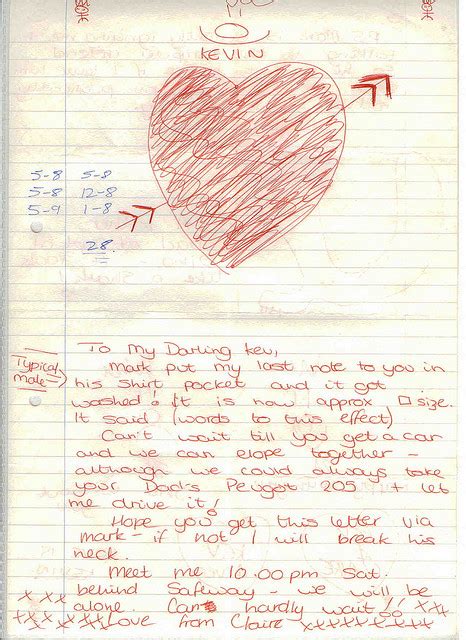 KEVIN
5-8 5-8
5-8 12-8
5-9 1-8
28
To My Darling Kev,
Mark put my last note to you in
Typical Male
his shirt pocket and it got
washed! It is now approx □ size.
It said (words to this effect)
Can't wait till you get a car
and we can elope together -
although we could always take
your Dad's Peugot 205 + let
me drive it!
Hope you get this letter via
Mark - if not I will break his
neck.
Meet me 10.00pm Sat.
behind Safeway - we will be
alone. Can hardly wait!!
Love from Claire xxxxxxxx